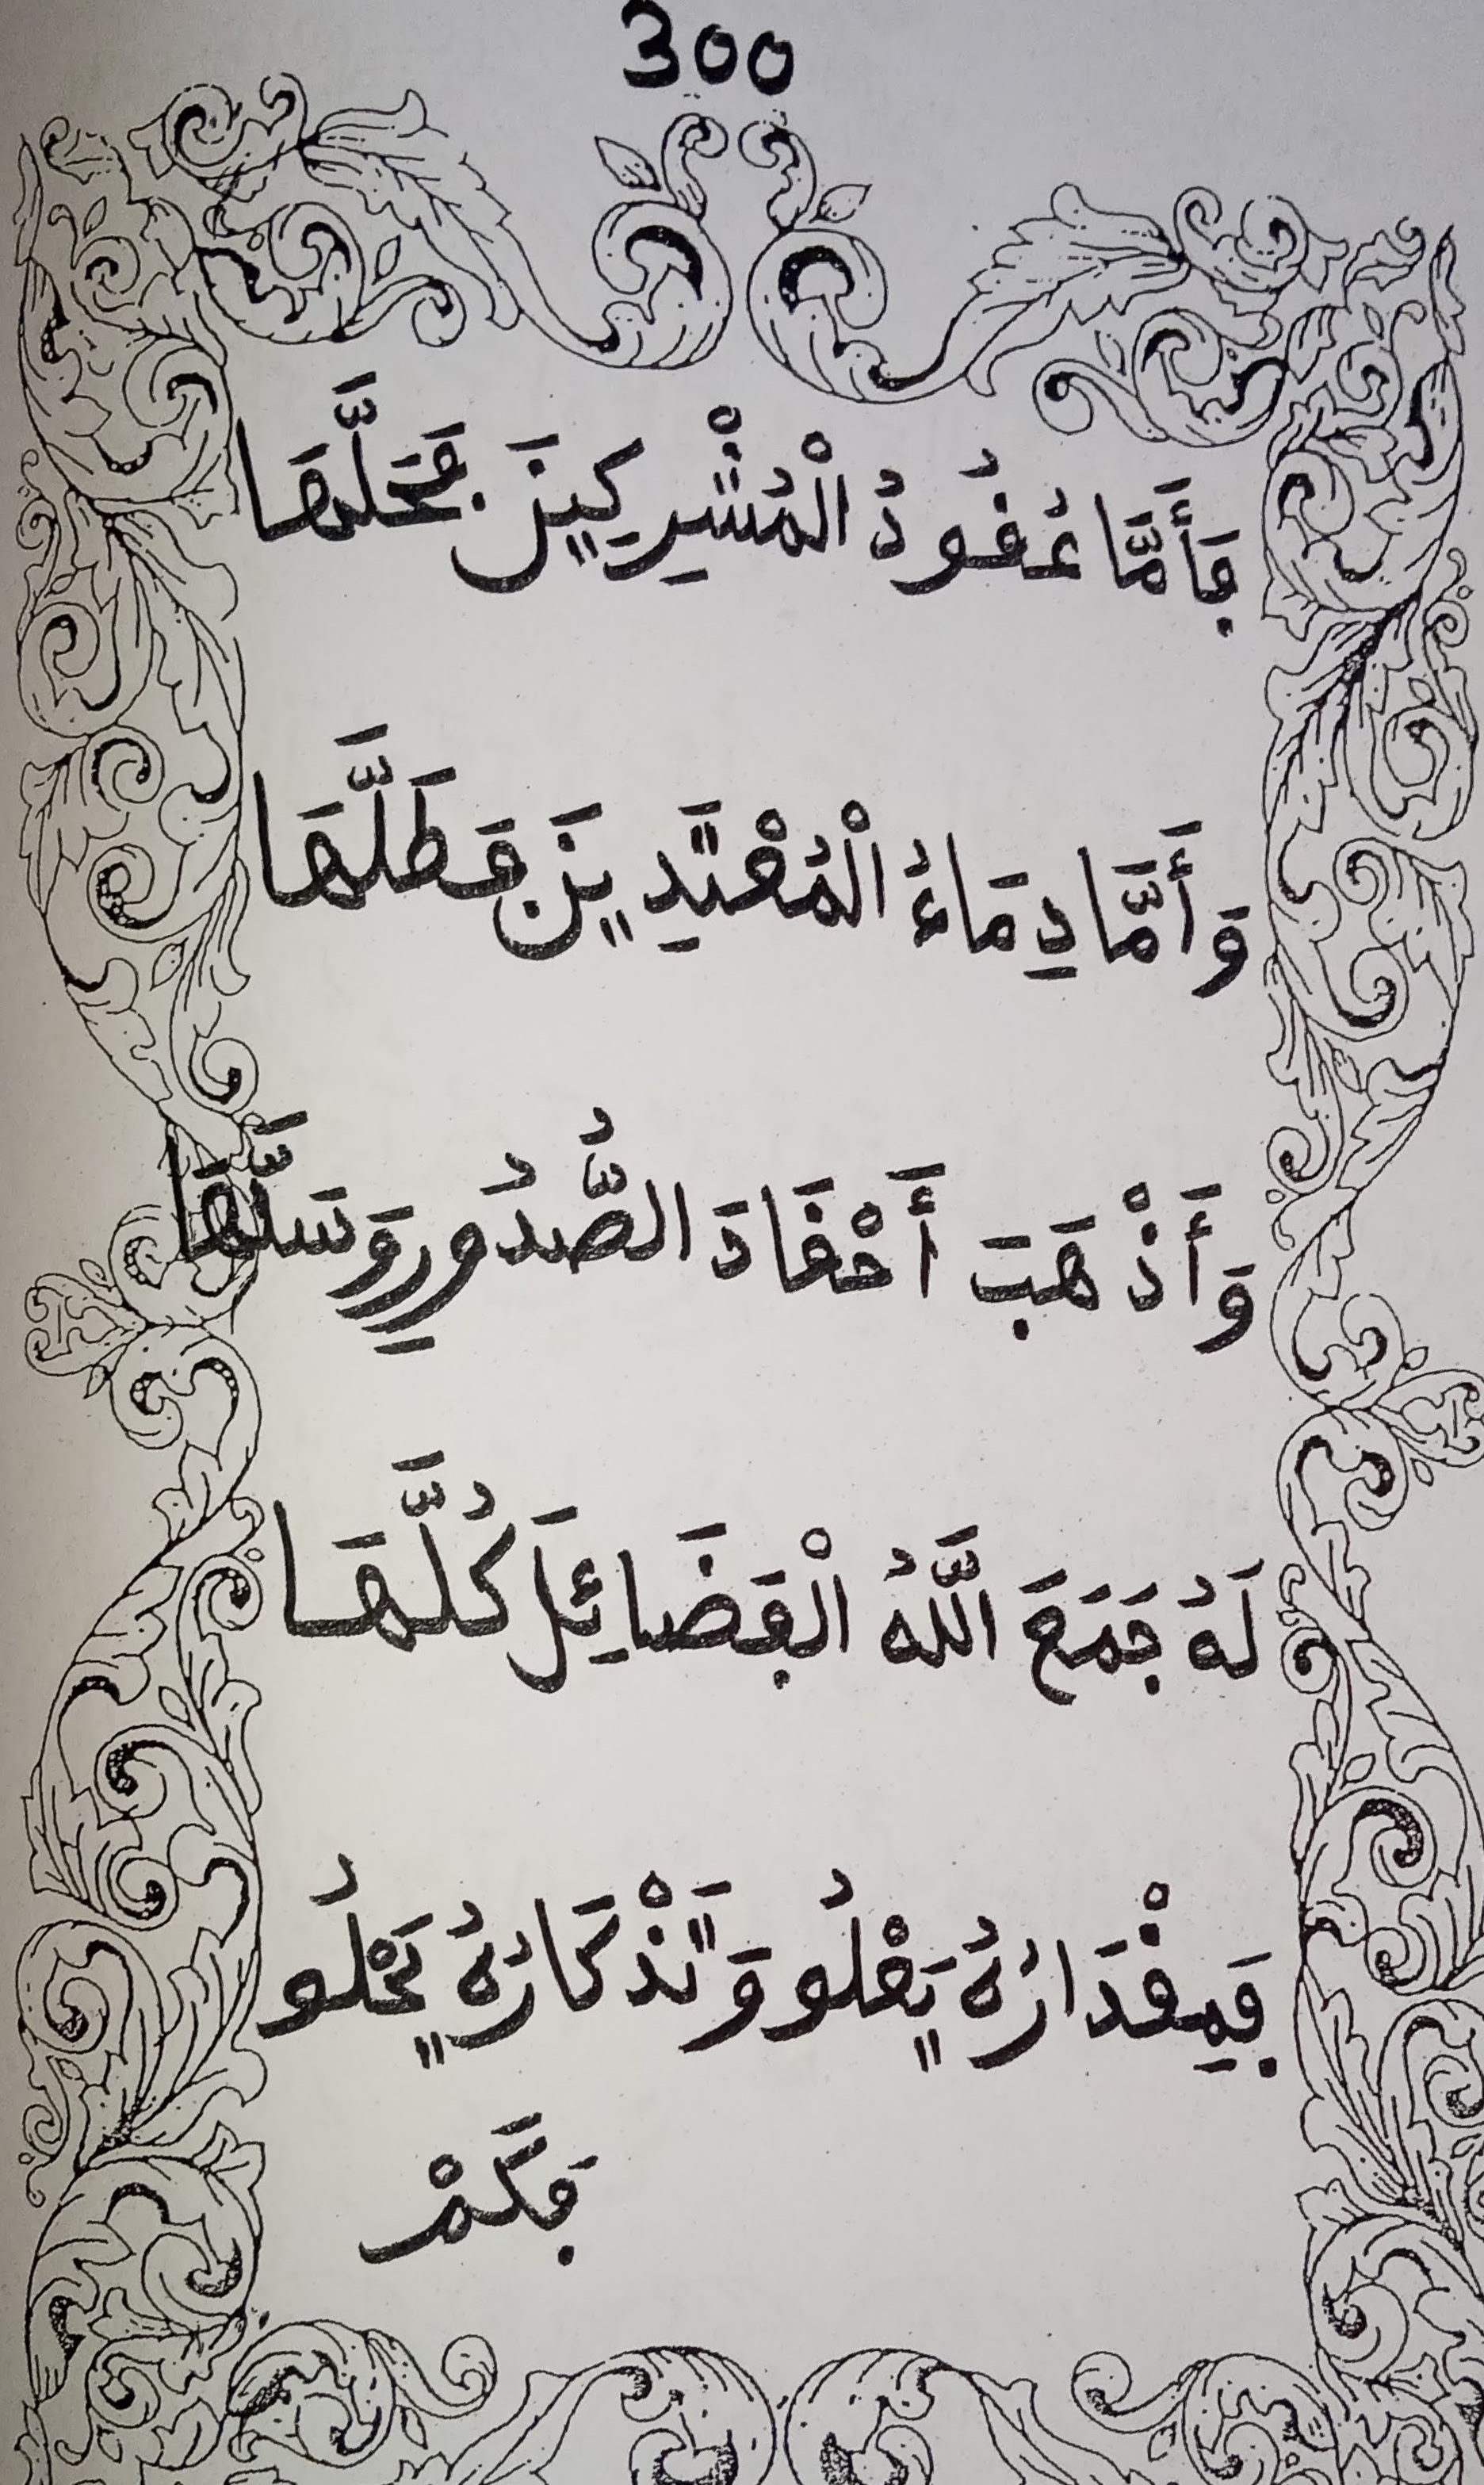 300
فَأَمَّا عُقُودُ الْمُشْرِكِينَ فَحَلَّهَا
وَأَمَّا دِمَاءُ الْمُعْتَدِينَ فَطَلَّهَا
وَأَذْهَبَ أَحْقَادَ الصُّدُورِ وَسَلَّهَا
لَهُ جَمَعَ اللَّهُ الْفَضَائِلَ كُلَّهَا
فَمِقْدَارُهُ يَعْلُو وَتَذْكَارُهُ يَحْلُو
فَكَمْ